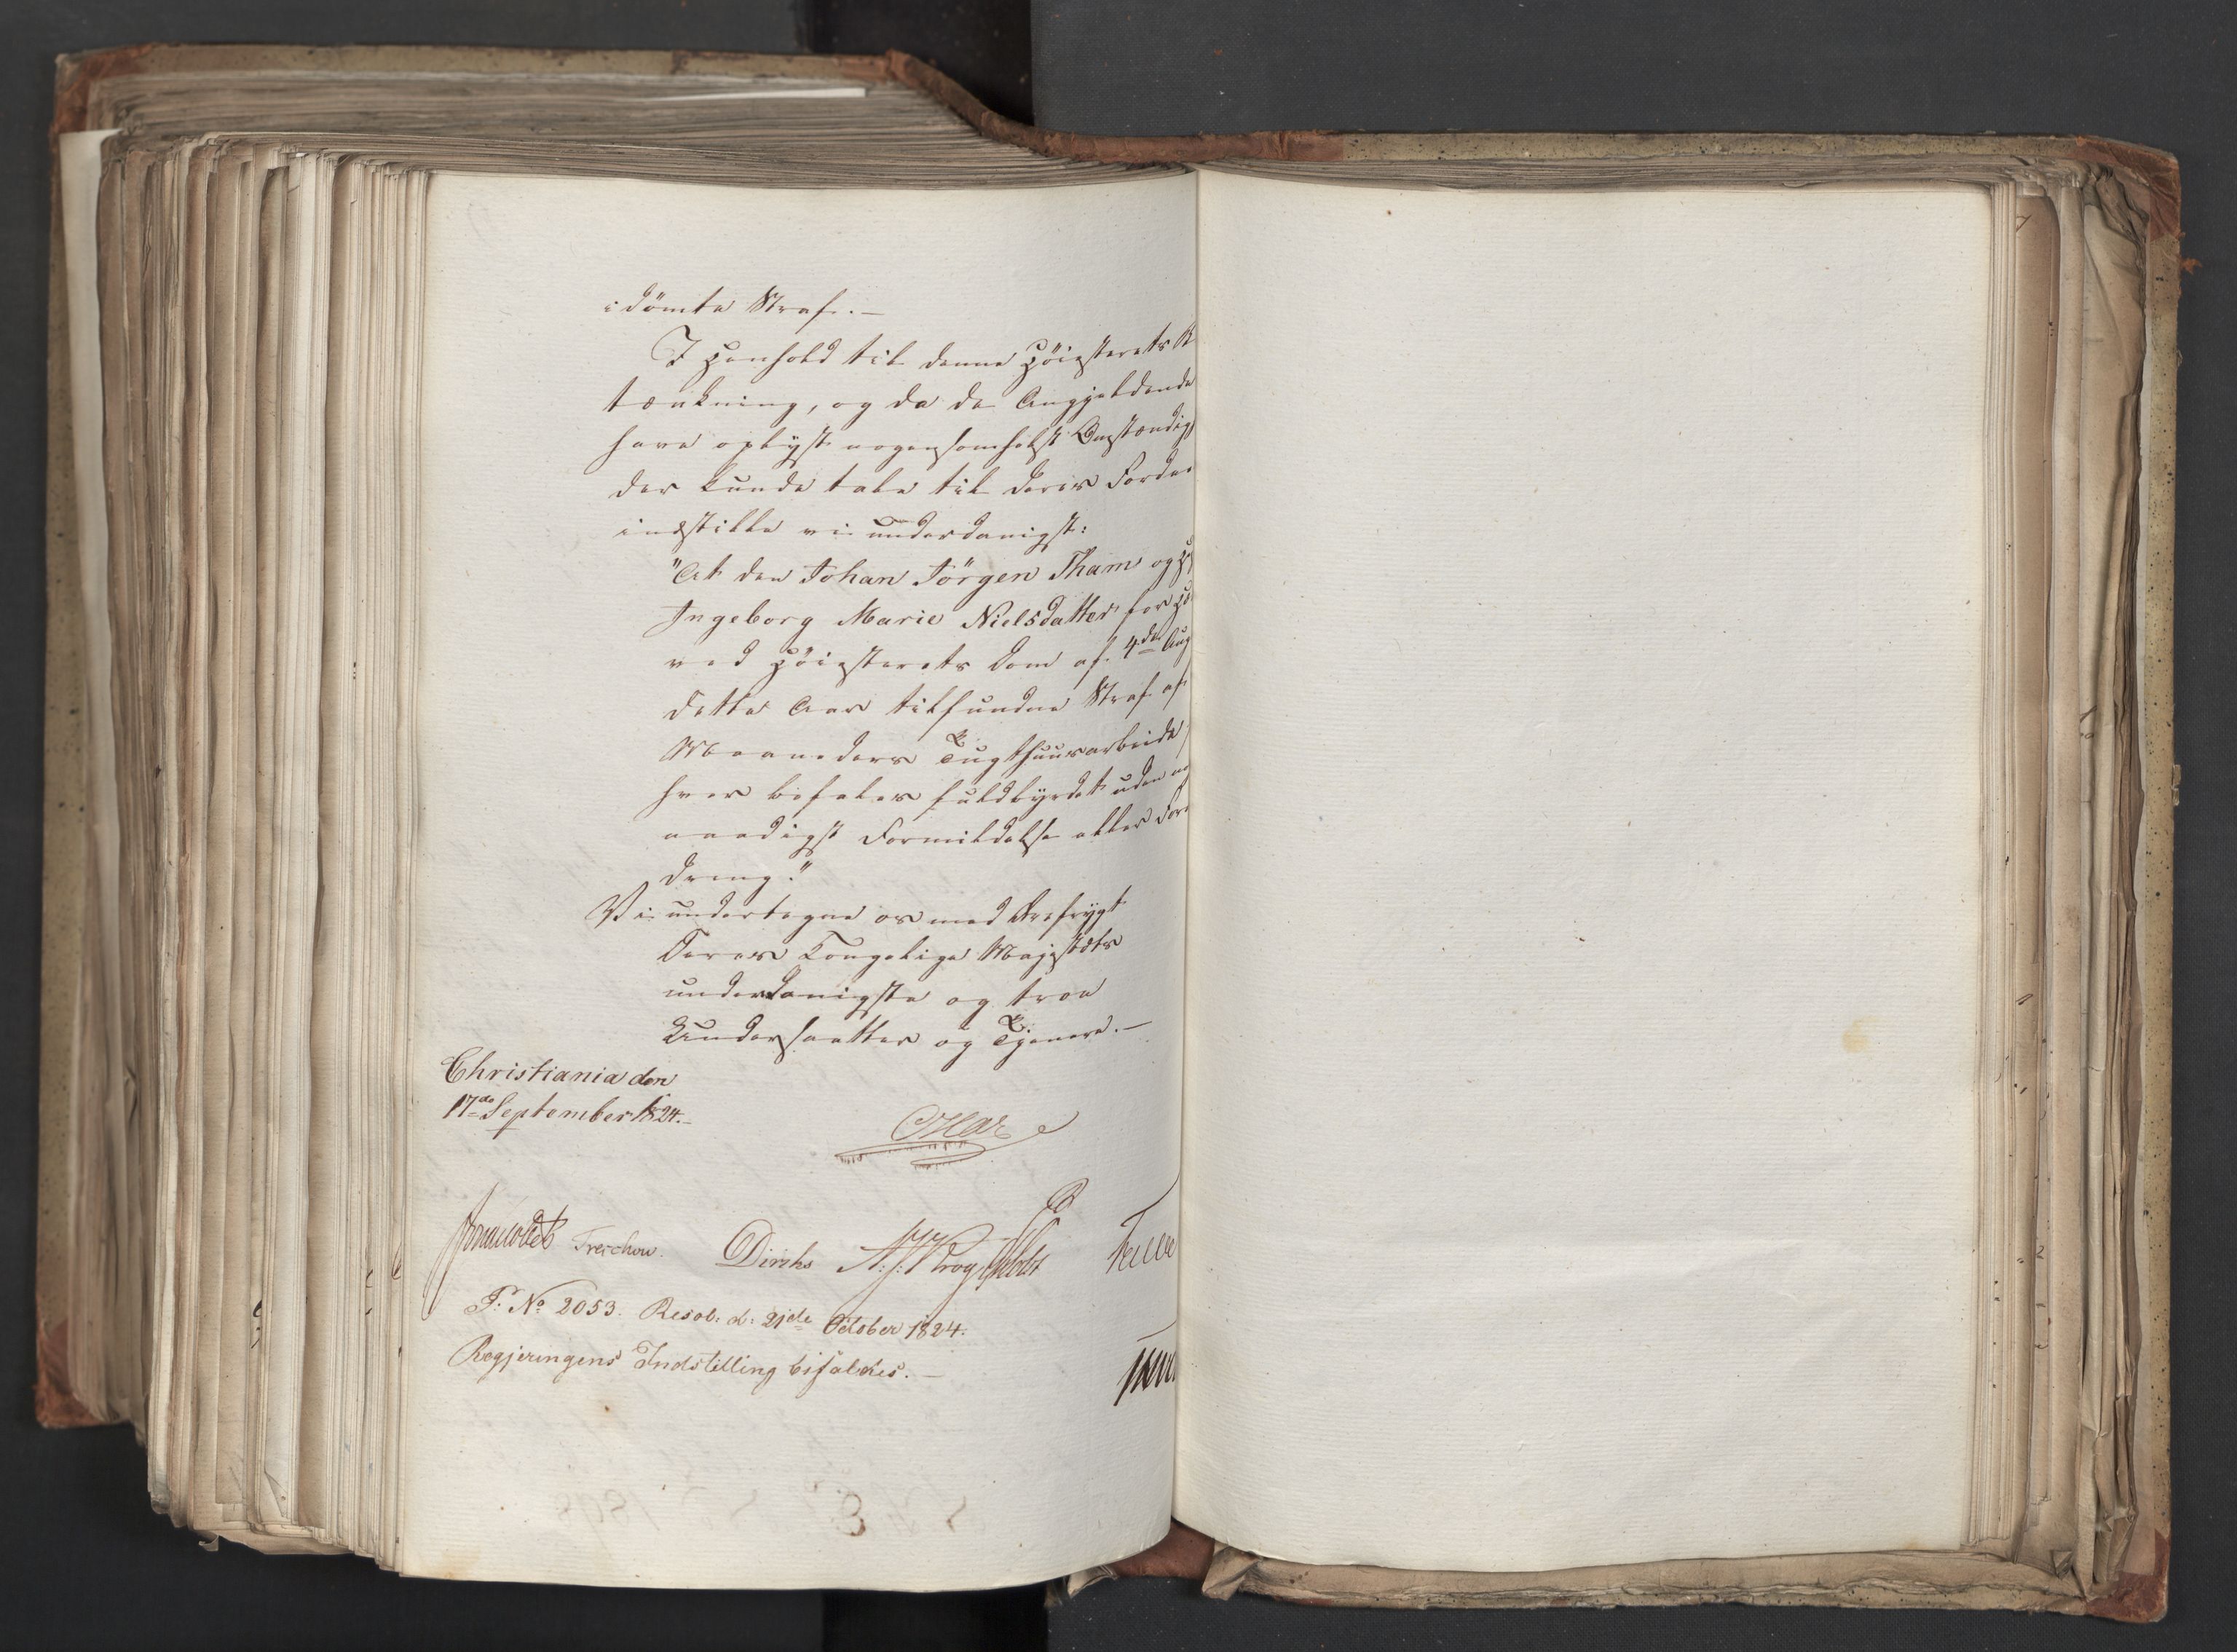 idömte Straf. —
I Henhold til denne Höiesterets B
tænkning, og da de Angjeldende
have oplyst nogensomhelst Omstændig
der kunde tale til deres Forde
indstille vi underdanigst:
"At den Johan Jörgen Tham og
Ingeborg Marie Nielsdatter for
ved Höiesterets Dom af 4de Aug
dette Aar tilfundne Straf af
Maaneders Tugthuusarbeide
hver befales fuldbyrdet uden
naadigst Formildelse eller For
dring."
Vi undertegne os med Ærefrygt
Deres Kongelige Majestæts
underdanigste og troe
Undersaatter og Tjenere. —
Christiania den
17de September 1824. —
Treschow. Diriks
P: No 2053. Resol: d: 21de October 1824.
Regjeringens Indstilling bifaldes. —